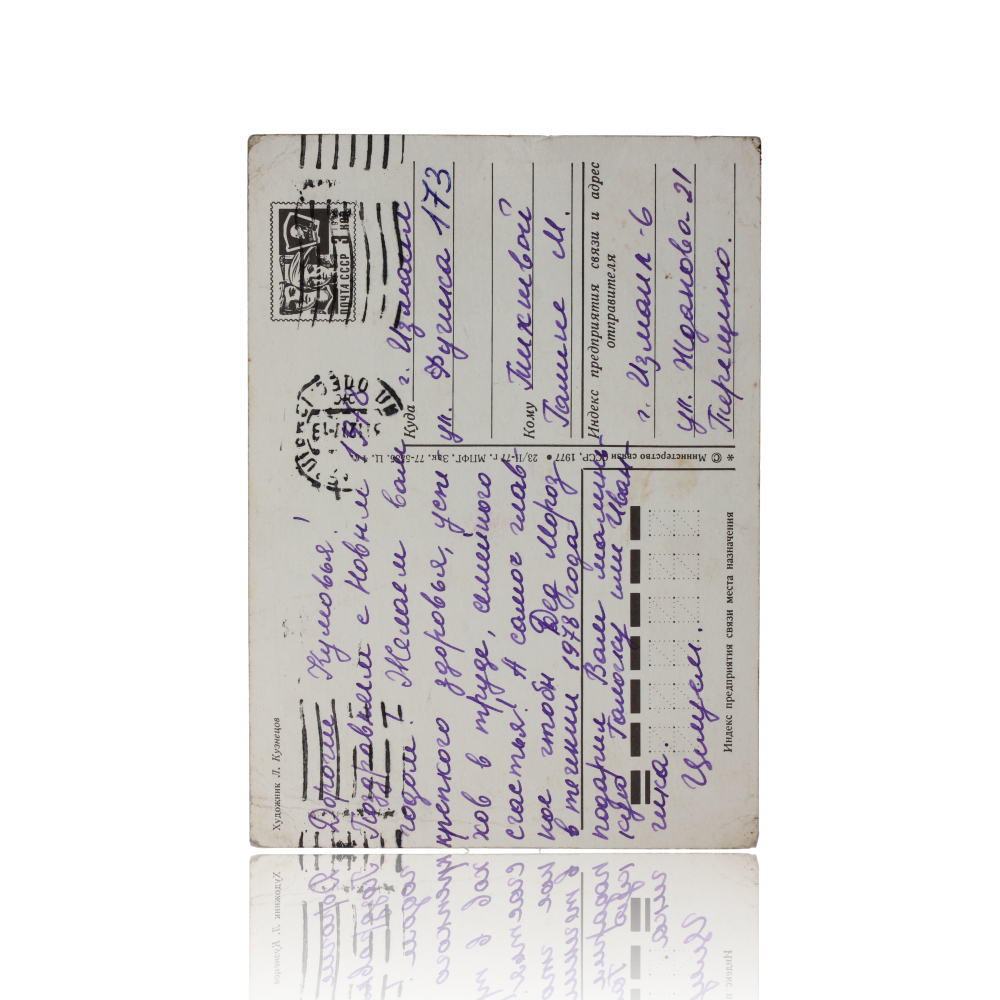 Художник Л. Кузнецов
Дорогие Кумовья!
Поздравляем с Новым 1978
годом! Желаем вам
крепкого здоровья, успе
хов в труде, семейного
счастья! А самое глав
ное чтобы Дед Мороз
в течении 1978 года
подарил Вам малень
кую Галочку или Иван
чика.
Целуем.
Индекс предприятия связи места назначения
* © Министерство связи СССР, 1977 • 23/II-77 г. МПФГ. Зак. 77-5736. Ц. 4 к.
ПОЧТА СССР 3 КОП
Куда г. Измаил
ул. Фучика 173
Кому
Галине М.
Индекс предприятия связи и адрес
отправителя
г. Измаил-6
ул. Жданова 21